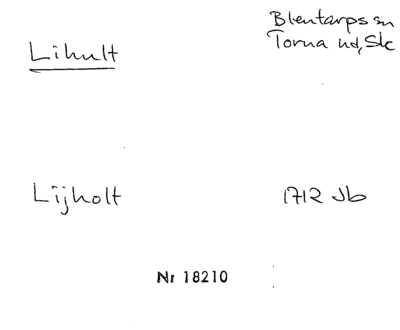 Lihult
Blentarps sn
Torna hd, Sk
Lijholt
1712 Jb
Nr 18210